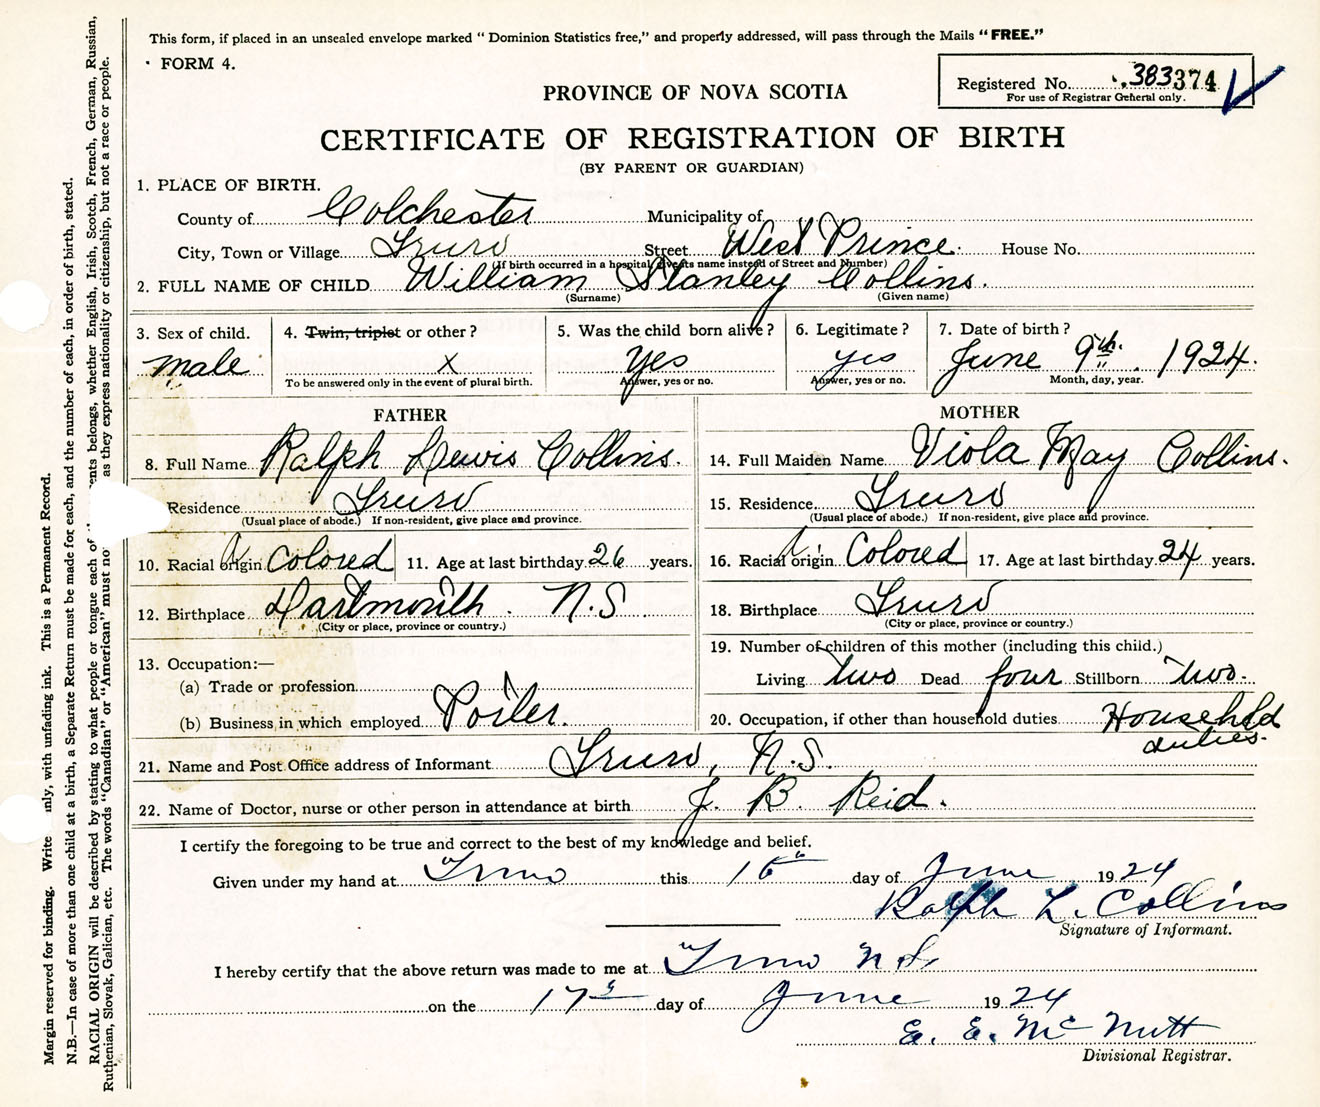 This form, if placed in an unsealed envelope marked “ Dominion Statistics free,” and properly addressed, will pass through the Mails “FREE.”
FORM 4.
Registered No. 383374
For use of Registrar General only.
PROVINCE OF NOVA SCOTIA
CERTIFICATE OF REGISTRATION OF BIRTH
(BY PARENT OR GUARDIAN)
1. PLACE OF BIRTH.
County of Colchester Municipality of
City, Town or Village Truro Street West Prince. House No.
(If birth occurred in a hospital, give its name instead of Street and Number)
2. FULL NAME OF CHILD William Stanley Collins.
(Surname) (Given name)
3. Sex of child. 4. Twin, triplet or other? 5. Was the child born alive? 6. Legitimate? 7. Date of birth?
male X yes yes June 9th. 1924.
To be answered only in the event of plural birth. Answer, yes or no. Answer, yes or no. Month, day, year.
FATHER
8. Full Name Ralph Lewis Collins.
Residence Truro
(Usual place of abode.) If non-resident, give place and province.
10. Racial origin Colored 11. Age at last birthday 26 years.
12. Birthplace Dartmouth. N.S
(City or place, province or country.)
13. Occupation:—
(a) Trade or profession
(b) Business in which employed Poiler.
MOTHER
14. Full Maiden Name Viola May Collins.
15. Residence Truro
(Usual place of abode.) If non-resident, give place and province.
16. Racial origin Colored 17. Age at last birthday 24 years.
18. Birthplace Truro
(City or place, province or country.)
19. Number of children of this mother (including this child.)
Living two Dead four Stillborn two.
20. Occupation, if other than household duties Househld
duties.
21. Name and Post Office address of Informant Truro, N.S.
22. Name of Doctor, nurse or other person in attendance at birth J. B. Reid.
I certify the foregoing to be true and correct to the best of my knowledge and belief.
Given under my hand at Truro this 16" day of June 1924
Ralph L. Collins
Signature of Informant.
I hereby certify that the above return was made to me at Truro N.S.
on the 17 day of June 1924
E. E. McNutt
Divisional Registrar.
Margin reserved for binding. Write nly, with unfading ink. This is a Permanent Record.
N.B.—In case of more than one child at a birth, a Separate Return must be made for each, and the number of each, in order of birth, stated.
RACIAL ORIGIN will be described by stating to what people or tongue each of ents belongs, whether English, Irish, Scotch, French, German, Russian,
Ruthenian, Slovak, Galician, etc. The words “Canadian” or “American” must no as they express nationality or citizenship, but not a race or people.